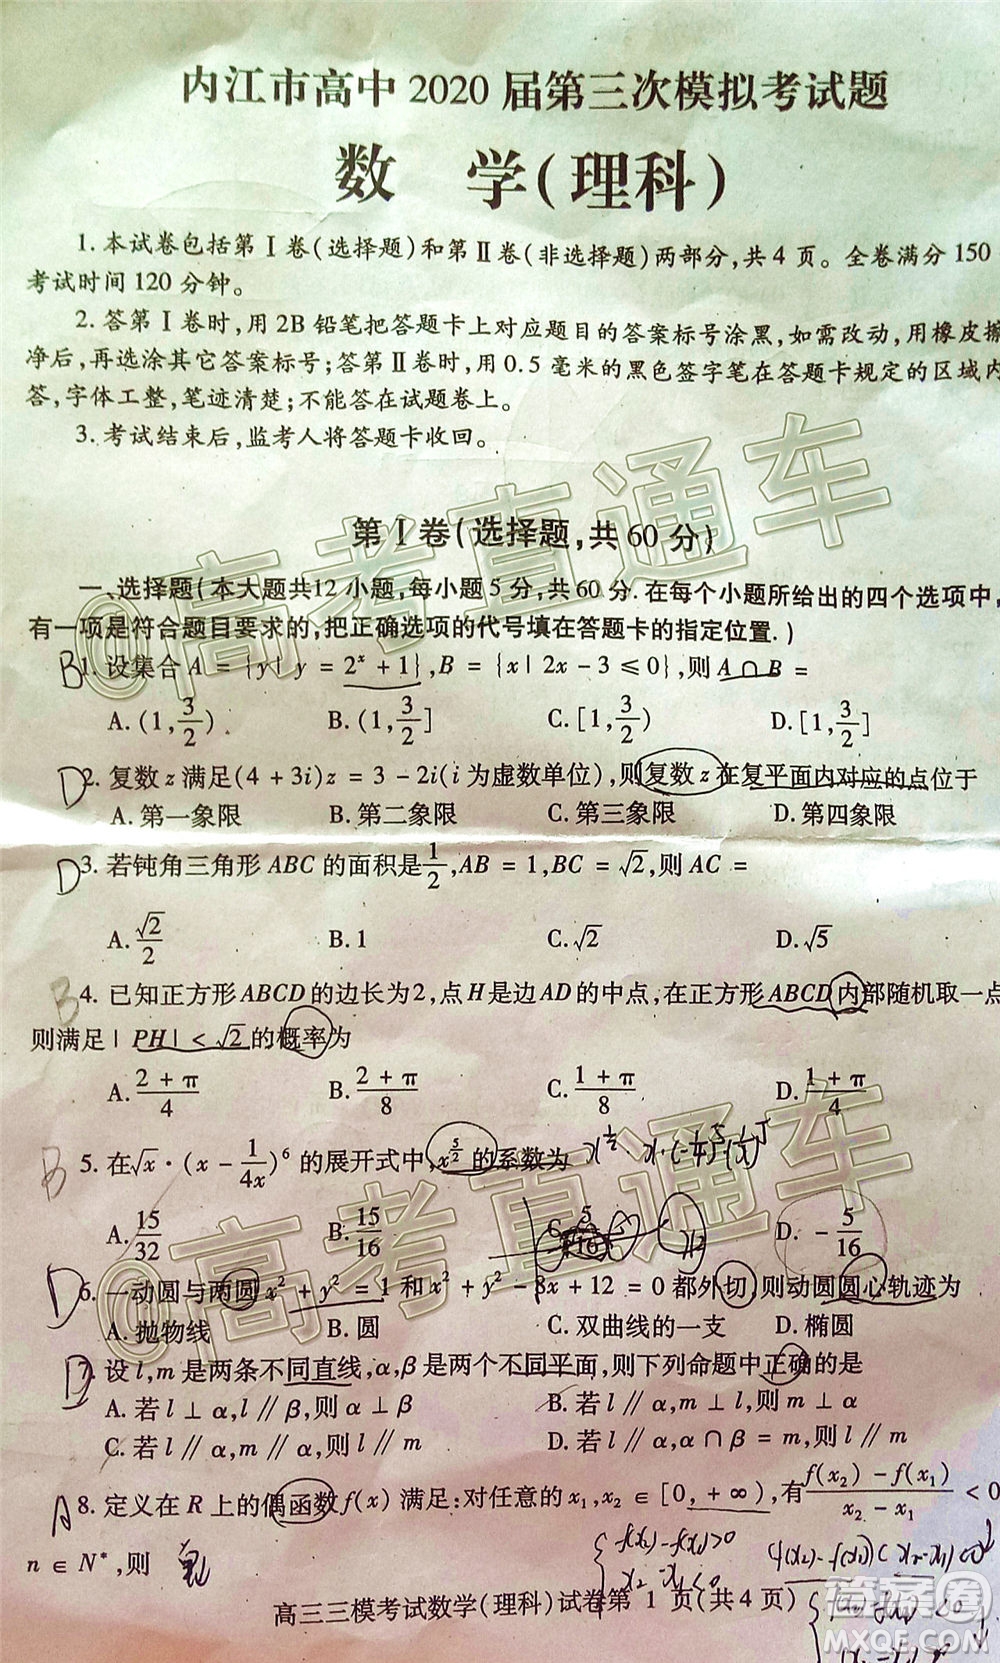 内江市高中2020届第三次模拟考试题
数 学(理科)
1.本试卷包括第Ⅰ卷(选择题)和第Ⅱ卷(非选择题)两部分,共4页。全卷满分150
考试时间120分钟。
2.答第Ⅰ卷时,用2B铅笔把答题卡上对应题目的答案标号涂黑,如需改动,用橡皮擦
净后,再选涂其它答案标号;答第Ⅱ卷时,用0.5毫米的黑色签字笔在答题卡规定的区域内
答,字体工整,笔迹清楚;不能答在试题卷上。
3.考试结束后,监考人将答题卡收回。
第Ⅰ卷(选择题,共60分)
一、选择题(本大题共12小题,每小题5分,共60分.在每个小题所给出的四个选项中,
有一项是符合题目要求的,把正确选项的代号填在答题卡的指定位置.)
B 1.设集合A={y|y=2^x+1},B={x|2x-3≤0},则A∩B=
A.(1,3/2) B.(1,3/2] C.[1,3/2) D.[1,3/2]
D 2.复数z满足(4+3i)z=3-2i(i为虚数单位),则复数z在复平面内对应的点位于
A.第一象限 B.第二象限 C.第三象限 D.第四象限
D 3.若钝角三角形ABC的面积是1/2,AB=1,BC=√2,则AC=
A.√2/2 B.1 C.√2 D.√5
B 4.已知正方形ABCD的边长为2,点H是边AD的中点,在正方形ABCD内部随机取一点
则满足|PH|<√2的概率为
A.(2+π)/4 B.(2+π)/8 C.(1+π)/8 D.(1+π)/4
B 5.在√x·(x-1/(4x))^6的展开式中,x^(5/2)的系数为
A.15/32 B.15/16 C.-5/16 D.-5/16
D 6.一动圆与两圆x²+y²=1和x²+y²-8x+12=0都外切,则动圆圆心轨迹为
A.抛物线 B.圆 C.双曲线的一支 D.椭圆
D 7.设l,m是两条不同直线,α,β是两个不同平面,则下列命题中正确的是
A.若l⊥α,l∥β,则α⊥β B.若l∥m,m⊥α,则l⊥α
C.若l∥α,m∥α,则l∥m D.若l∥α,α∩β=m,则l∥m
A 8.定义在R上的偶函数f(x)满足:对任意的x₁,x₂∈[0,+∞),有(f(x₂)-f(x₁))/(x₂-x₁)<0
n∈N*,则
高三三模考试数学(理科)试卷第1页(共4页)
@高考直通车
@高考直通车
答案圈
MXQE.COM